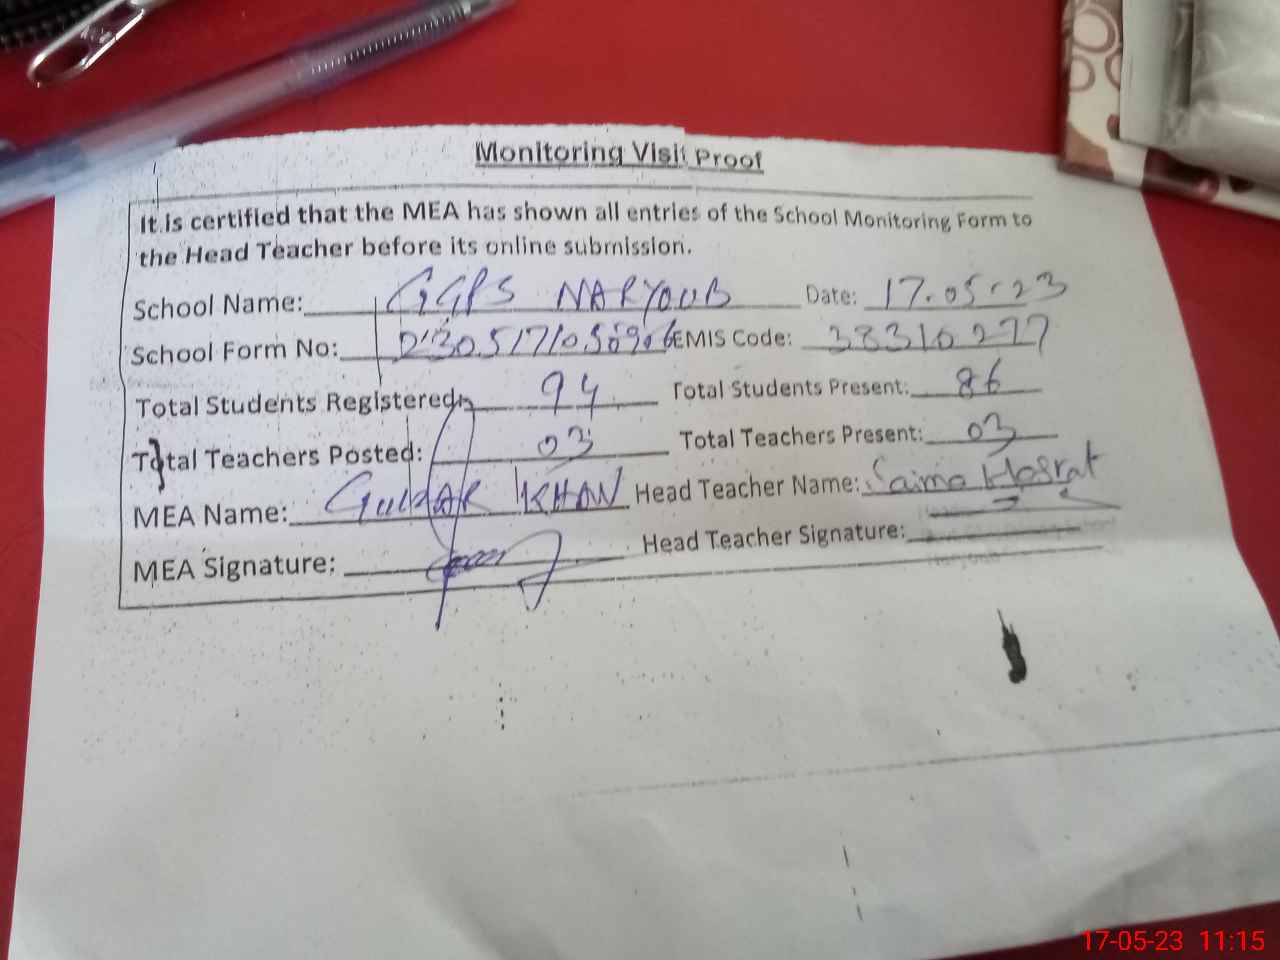 Monitoring Visit Proof
It is certified that the MEA has shown all entries of the School Monitoring Form to
the Head Teacher before its online submission.
School Name: GGPS NARYOUB Date: 17.05.23
School Form No: EMIS Code: 38310277
Total Students Registered: 94 Total Students Present: 86
Total Teachers Posted: 03 Total Teachers Present: 03
MEA Name: GULZAR KHAN Head Teacher Name: Saima Hasrat
MEA Signature: Head Teacher Signature:
17-05-23 11:15